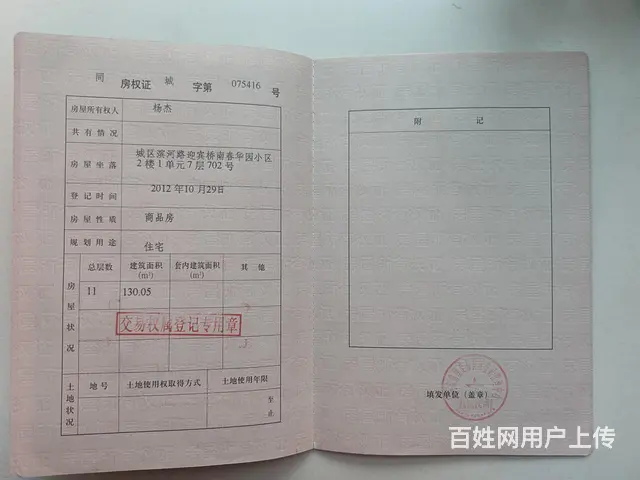 同 房权证 城 字第 075416 号
房屋所有权人 杨杰
共有情况
房屋坐落 城区滨河路迎宾桥南春华园小区
2楼1单元7层702号
登记时间 2012年10月29日
房屋性质 商品房
规划用途 住宅
房屋状况
总层数 建筑面积(m²) 套内建筑面积(m²) 其他
11 130.05
交易权属登记专用章
土地状况
地号 土地使用权取得方式 土地使用年限
至
止
附记
填发单位(盖章)
百姓网用户上传